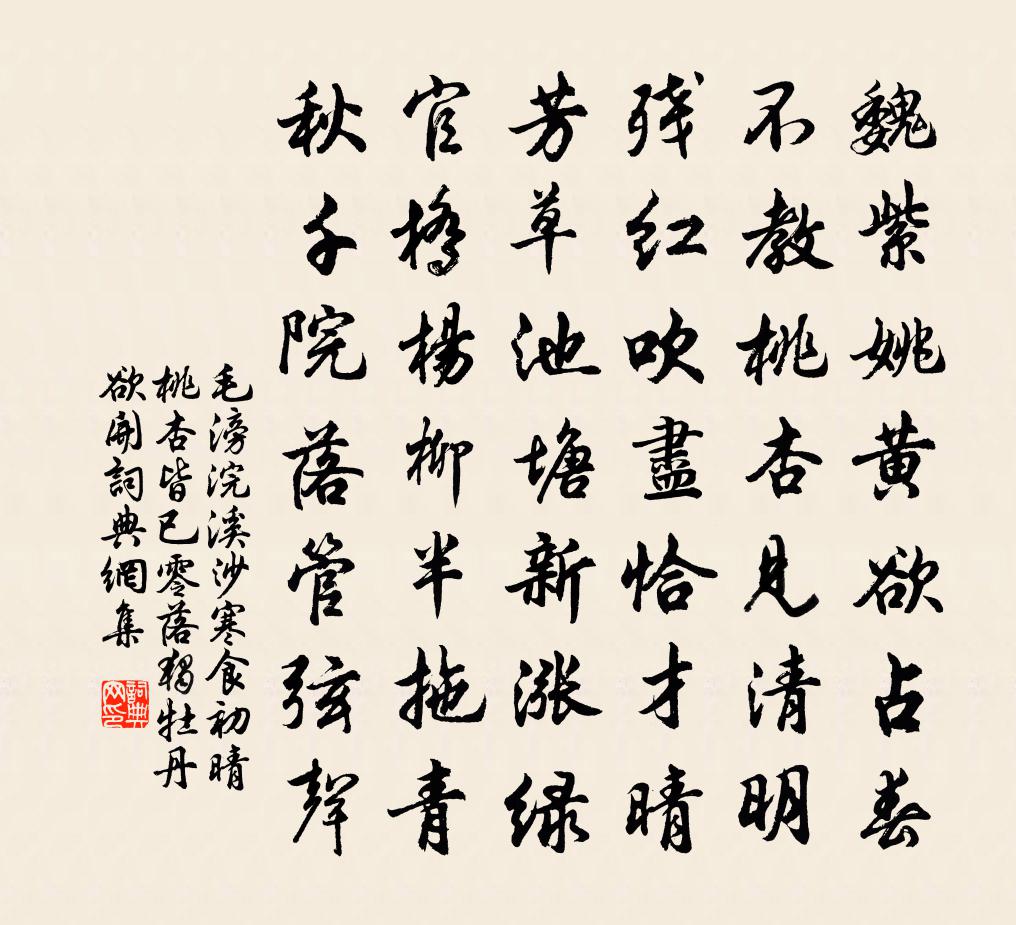 魏紫姚黄欲占春
不教桃杏見清明
残紅吹盡恰才晴
芳草池塘新漲緑
官橋楊柳半拖青
秋千院落管弦聲
毛滂浣溪沙寒食初晴
桃杏皆已零落獨牡丹
欲開詞典網集
詞典
网印